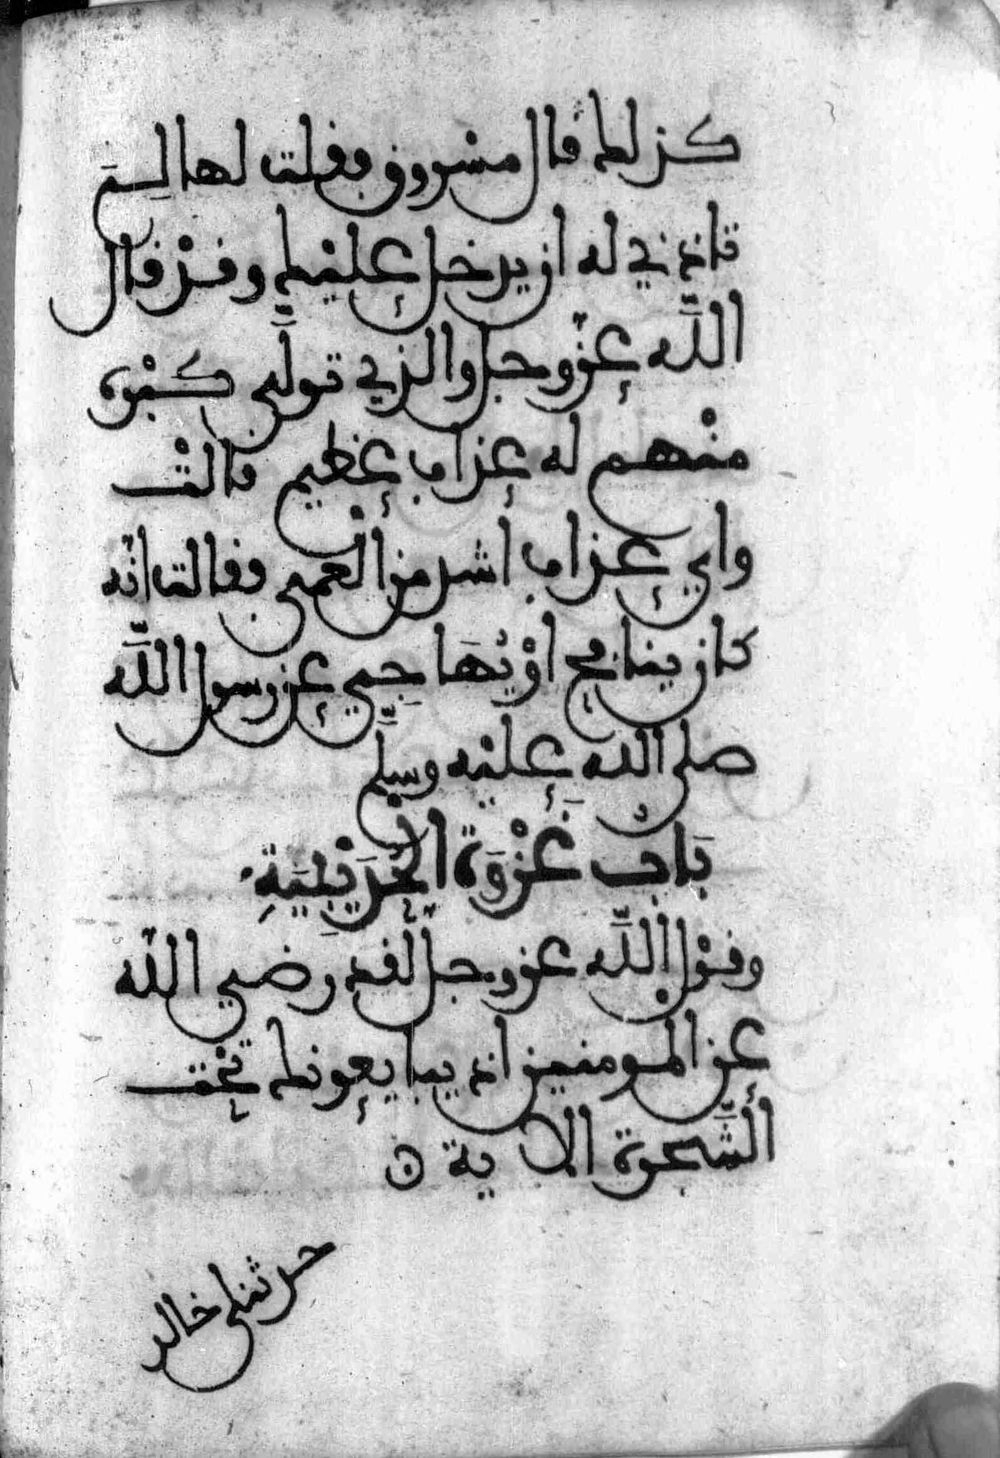 كذلك قال مسروق فقلت لها لِمَ
تاذني له ان يدخل عليك وقد قال
اللّه عزّ وجل والذي تولّى كِبْره
منْهم له عذاب عظيم قالتْ
واي عذاب أشد من العمى فقالت انّه
كان ينافح اوْ يُهَاجِي عن رسول اللّه
صلى اللّه عليْه وسلّم
بَابُ غَزْوَة الْحُدَيْبِيَةِ
وقوْل اللّه عز وجل لقد رضي اللّه
عن المْومنين اذ يبايعونك تحْت
الشّجرة الاية ن
حدثني خالد